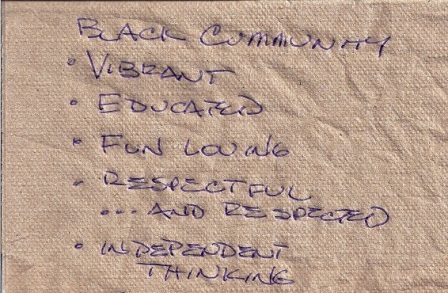 BLACK COMMUNITY
• VIBRANT
• EDUCATED
• FUN LOVING
• RESPECTFUL
... AND RESPECTED
• INDEPENDENT
THINKING